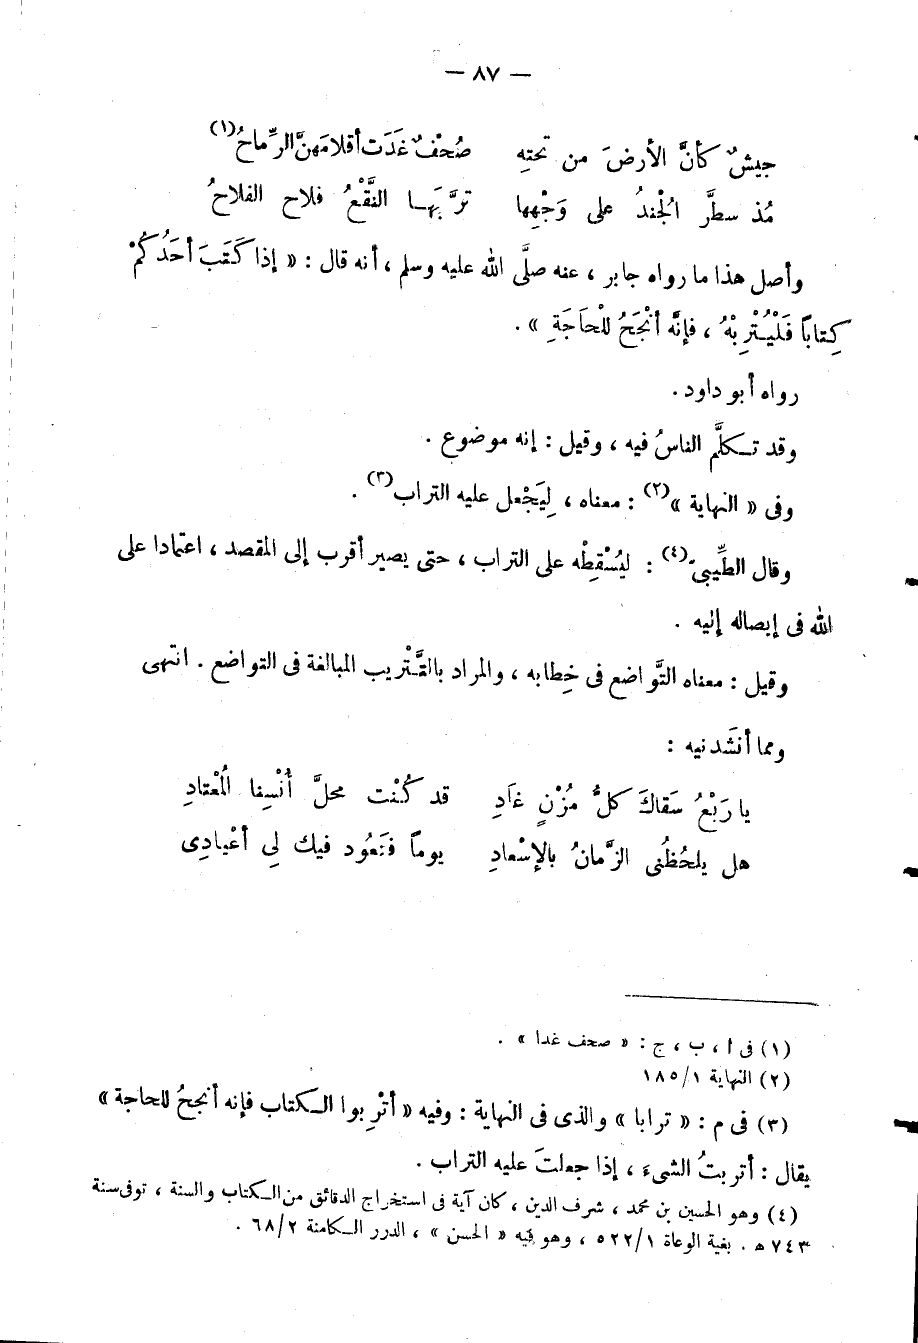 — ٨٧ —
جيشٌ كأنَّ الأرضَ من تحتِهِ صُحْفٌ غَدَت أقلامَهنَّ الرِّماحُ(١)
مُذ سطَّر الجُندُ على وَجْهِها ترَّبَهَا النَّقْعُ فلاح الفلاحُ
وأصل هذا ما رواه جابر ، عنه صلَّى الله عليه وسلم ، أنه قال : « إذا كَتَبَ أحَدُكُمْ
كِتاباً فَلْيُتْرِبْهُ ، فإنَّه أنْجَحُ للْحَاجَةِ » .
رواه أبو داود .
وقد تكلَّم الناسُ فيه ، وقيل : إنه موضوع .
وفى « النهاية »(٢) : معناه ، لِيَجْعل عليه التراب(٣) .
وقال الطِّيبىّ(٤) : ليُسْقِطْه على التراب ، حتى يصير أقرب إلى المقصد ، اعتمادا على
الله فى إيصاله إليه .
وقيل : معناه التَّواضع فى خِطابه ، والمراد بالتَّتْريب المبالغة فى التواضع . انتهى
ومما أنشَدنيه :
يا رَبْعُ سَقاكَ كلُّ مُزْنٍ غَادِ قد كُنْت محلَّ أُنْسِنا المُعْتادِ
هل يلحظُنى الزَّمانُ بالإسْعادِ يوماً فتَعُود فيك لِى أعْيادِى
(١) فى ا ، ب ، ج : « صحف غدا » .
(٢) النهاية ١/١٨٥
(٣) فى م : « ترابا » والذى فى النهاية : وفيه « أتْرِبوا الكتاب فإنه أنجحُ للحاجة »
يقال : أتربتُ الشىءَ ، إذا جعلتَ عليه التراب .
(٤) وهو الحسين بن محمد ، شرف الدين ، كان آية فى استخراج الدقائق من الكتاب والسنة ، توفى سنة
٧٤٣ ه . بغية الوعاة ١/٥٢٢ ، وهو فيه « الحسن » ، الدرر الكامنة ٢/٦٨ .